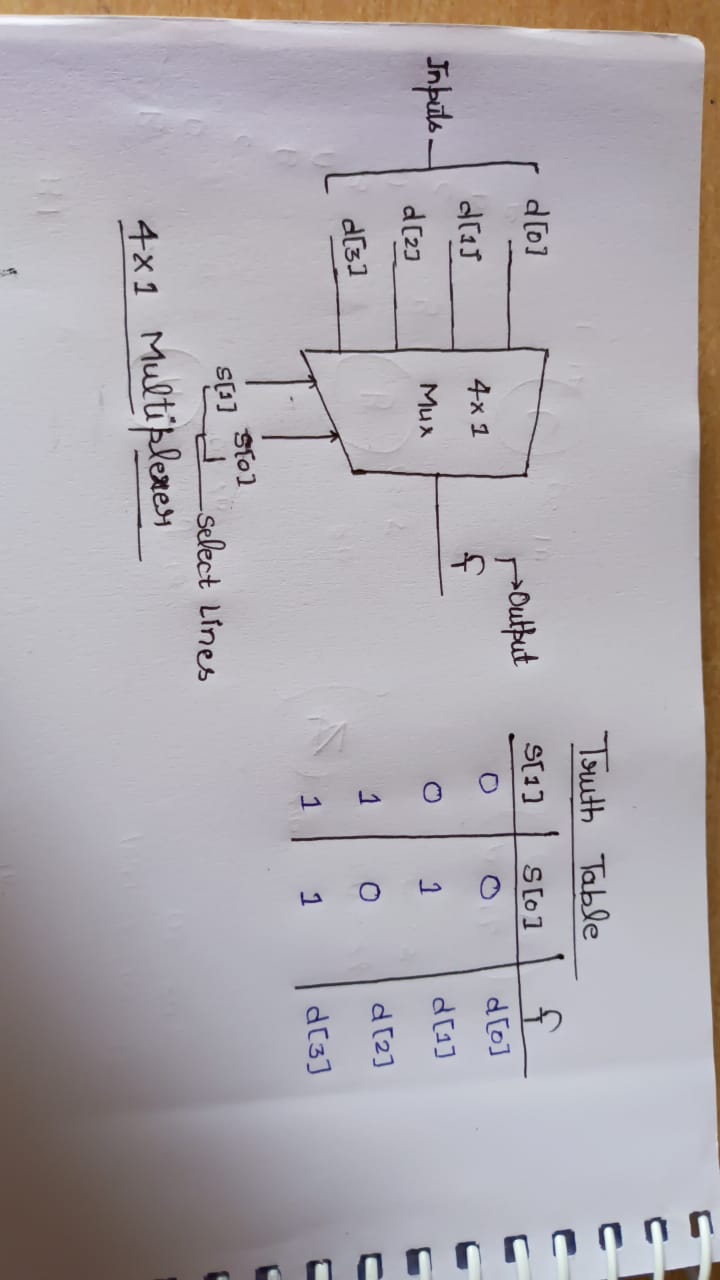 Inputs
d[0]
d[1]
d[2]
d[3]
4x1
Mux
f
Output
S[1] S[0]
Select Lines
4x1 Multiplexer
Truth Table
S[1] S[0] f
0 0 d[0]
0 1 d[1]
1 0 d[2]
1 1 d[3]